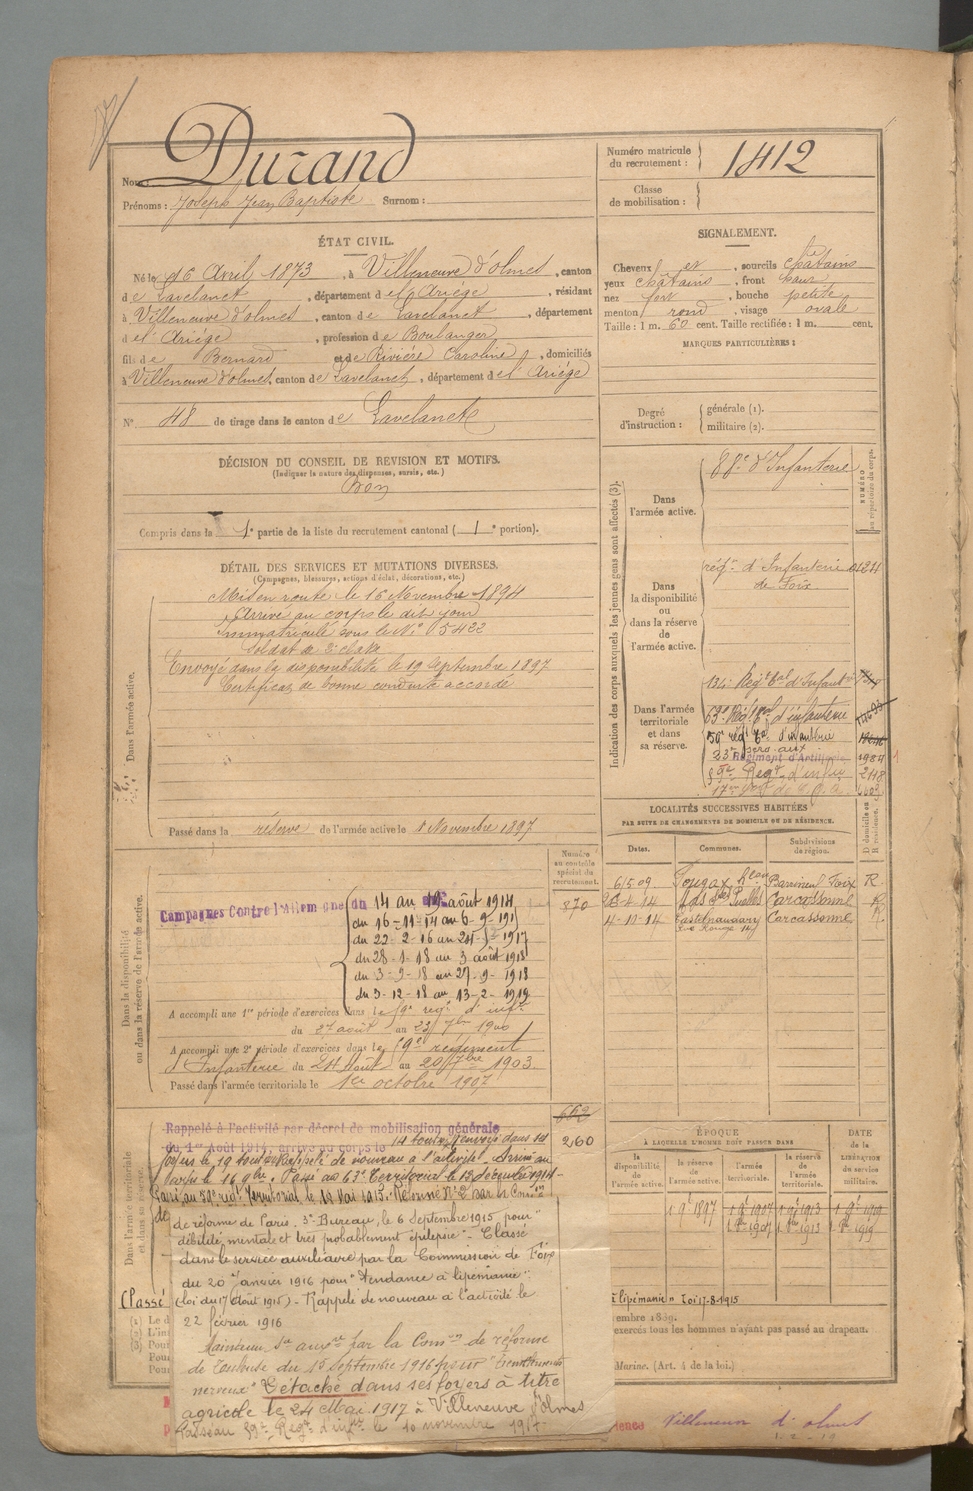 Durand
Nom :
Prénoms : Joseph Jean Baptiste Surnom :
Numéro matricule du recrutement : 1412
Classe de mobilisation :
ÉTAT CIVIL.
Né le 16 Avril 1873, à Villeneuve d'olmes, canton
de Lavelanet, département de l'Ariége, résidant
à Villeneuve d'olmes, canton de Lavelanet, département
de l'Ariége, profession de Boulanger
fils de Bernard et de Riviére Caroline, domiciliés
à Villeneuve d'olmes, canton de Lavelanet, département de l'Ariége
N° 48 de tirage dans le canton de Lavelanet
SIGNALEMENT.
Cheveux et, sourcils chatains
yeux chatains, front haut
nez fort, bouche petite
menton rond, visage ovale
Taille : 1 m. 60 cent. Taille rectifiée : 1 m. cent.
MARQUES PARTICULIÈRES :
Degré d'instruction : générale (1).
militaire (2).
DÉCISION DU CONSEIL DE REVISION ET MOTIFS.
(Indiquer la nature des dispenses, sursis, etc.)
Bon
Compris dans la 1e partie de la liste du recrutement cantonal ( 1e portion).
DÉTAIL DES SERVICES ET MUTATIONS DIVERSES.
(Campagnes, blessures, actions d'éclat, décorations, etc.)
Dans l'armée active.
Mis en route le 16 Novembre 1894
Arrivé au corps le dit jour
Immatriculé sous le N° 5422
Soldat de 2e classe
Envoyé dans la disponibilité le 19 Septembre 1897
Certificat de bonne conduite accordé
Passé dans la réserve de l'armée active le 1 Novembre 1897
Indication des corps auxquels les jeunes gens sont affectés (3).
NUMÉRO au répertoire du corps.
Dans l'armée active.
88e d'Infanterie
Dans la disponibilité ou dans la réserve de l'armée active.
régt d'Infanterie
de Foix
Dans l'armée territoriale et dans sa réserve.
134e Régt Tal d'Infantie
63e Régt Tal d'infanterie
59e régt Tal d'infanterie
23e Régiment d'Artillerie 1984
59e Regt d'infie 2118
LOCALITÉS SUCCESSIVES HABITÉES
PAR SUITE DE CHANGEMENTS DE DOMICILE OU DE RÉSIDENCE.
Dates. Communes. Subdivisions de région. D domicile ou R résidence.
6/5.09 Foix R
Carcassonne R
4-10-14 Castelnaudary Carcassonne R
Numéro au contrôle spécial du recrutement.
870
Dans la disponibilité ou dans la réserve de l'armée active.
Campagnes Contre l'Allemagne du 14 au 19 août 1914
du 16-11-14 au 6-9-191
du 22-2-16 au 24-5-1917
du 28-1-18 au 3 août 1918
du 3-9-18 au 27-9-1918
du 3-12-18 au 13-2-1919
A accompli une 1re période d'exercices dans le 59e regt d'inftie
du 27 août au 23 7bre 1900
A accompli une 2e période d'exercices dans le 59e regiment
d'Infanterie du 24 Août au 20 7bre 1903.
Passé dans l'armée territoriale le 1er octobre 1907
Dans l'armée territoriale et dans sa réserve
662
260
Rappelé à l'activité par décret de mobilisation générale
du 1er Août 1914, arrivé au corps le 14 août. Renvoyé dans ses
foyers le 19 août. Rappelé de nouveau à l'activité. Arrivé au
corps le 16 9bre. Passé au 63e Territorial le 13 décembre 1914.
Passé au 59e regt Territorial le 14 Mai 1915. Réformé N° 2 par la Comon
de réforme de Paris. 3e Bureau, le 6 Septembre 1915 pour "
débilité mentale et très probablement épilepsie". Classé
dans le service auxiliaire par la Commission de Foix
du 20 Janvier 1916 pour "tendance à lipemanie".
(Loi du 17 Août 1915). Rappelé de nouveau à l'activité le
22 février 1916
Maintenu Sce auxre par la Comon de réforme
de Toulouse du 15 Septembre 1916 pour "tremblements
nerveux". Détaché dans ses foyers à titre
agricole le 24 Mai 1917 à Villeneuve d'Olmes
Passé au 59e Regt d'infie le 10 novembre 1917.
Classé
à lipémanie" Loi 17-8-1915
ÉPOQUE
À LAQUELLE L'HOMME DOIT PASSER DANS
la disponibilité de l'armée active. la réserve de l'armée active. l'armée territoriale. la réserve de l'armée territoriale.
DATE de la LIBÉRATION du service militaire.
1 9e 1897 1 9e 1907 1 9e 1913 1 9e 1919
1 8e 1907 1 8e 1913 1 8e 1919
embre 1889.
exercés tous les hommes n'ayant pas passé au drapeau.
Marine. (Art. 4 de la loi.)
Villeneuve d'olmes